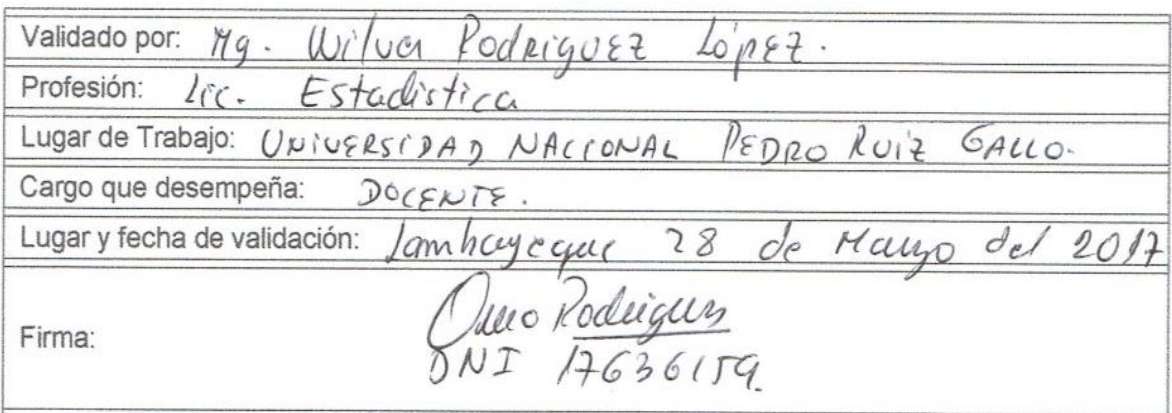 Validado por: Mg. Wilver Rodriguez López.
Profesión: Lic. Estadistica
Lugar de Trabajo: UNIVERSIDAD NACIONAL PEDRO RUIZ GALLO.
Cargo que desempeña: DOCENTE.
Lugar y fecha de validación: Lambayeque 28 de Marzo del 2017
Firma: Rodriguez
DNI 17636159